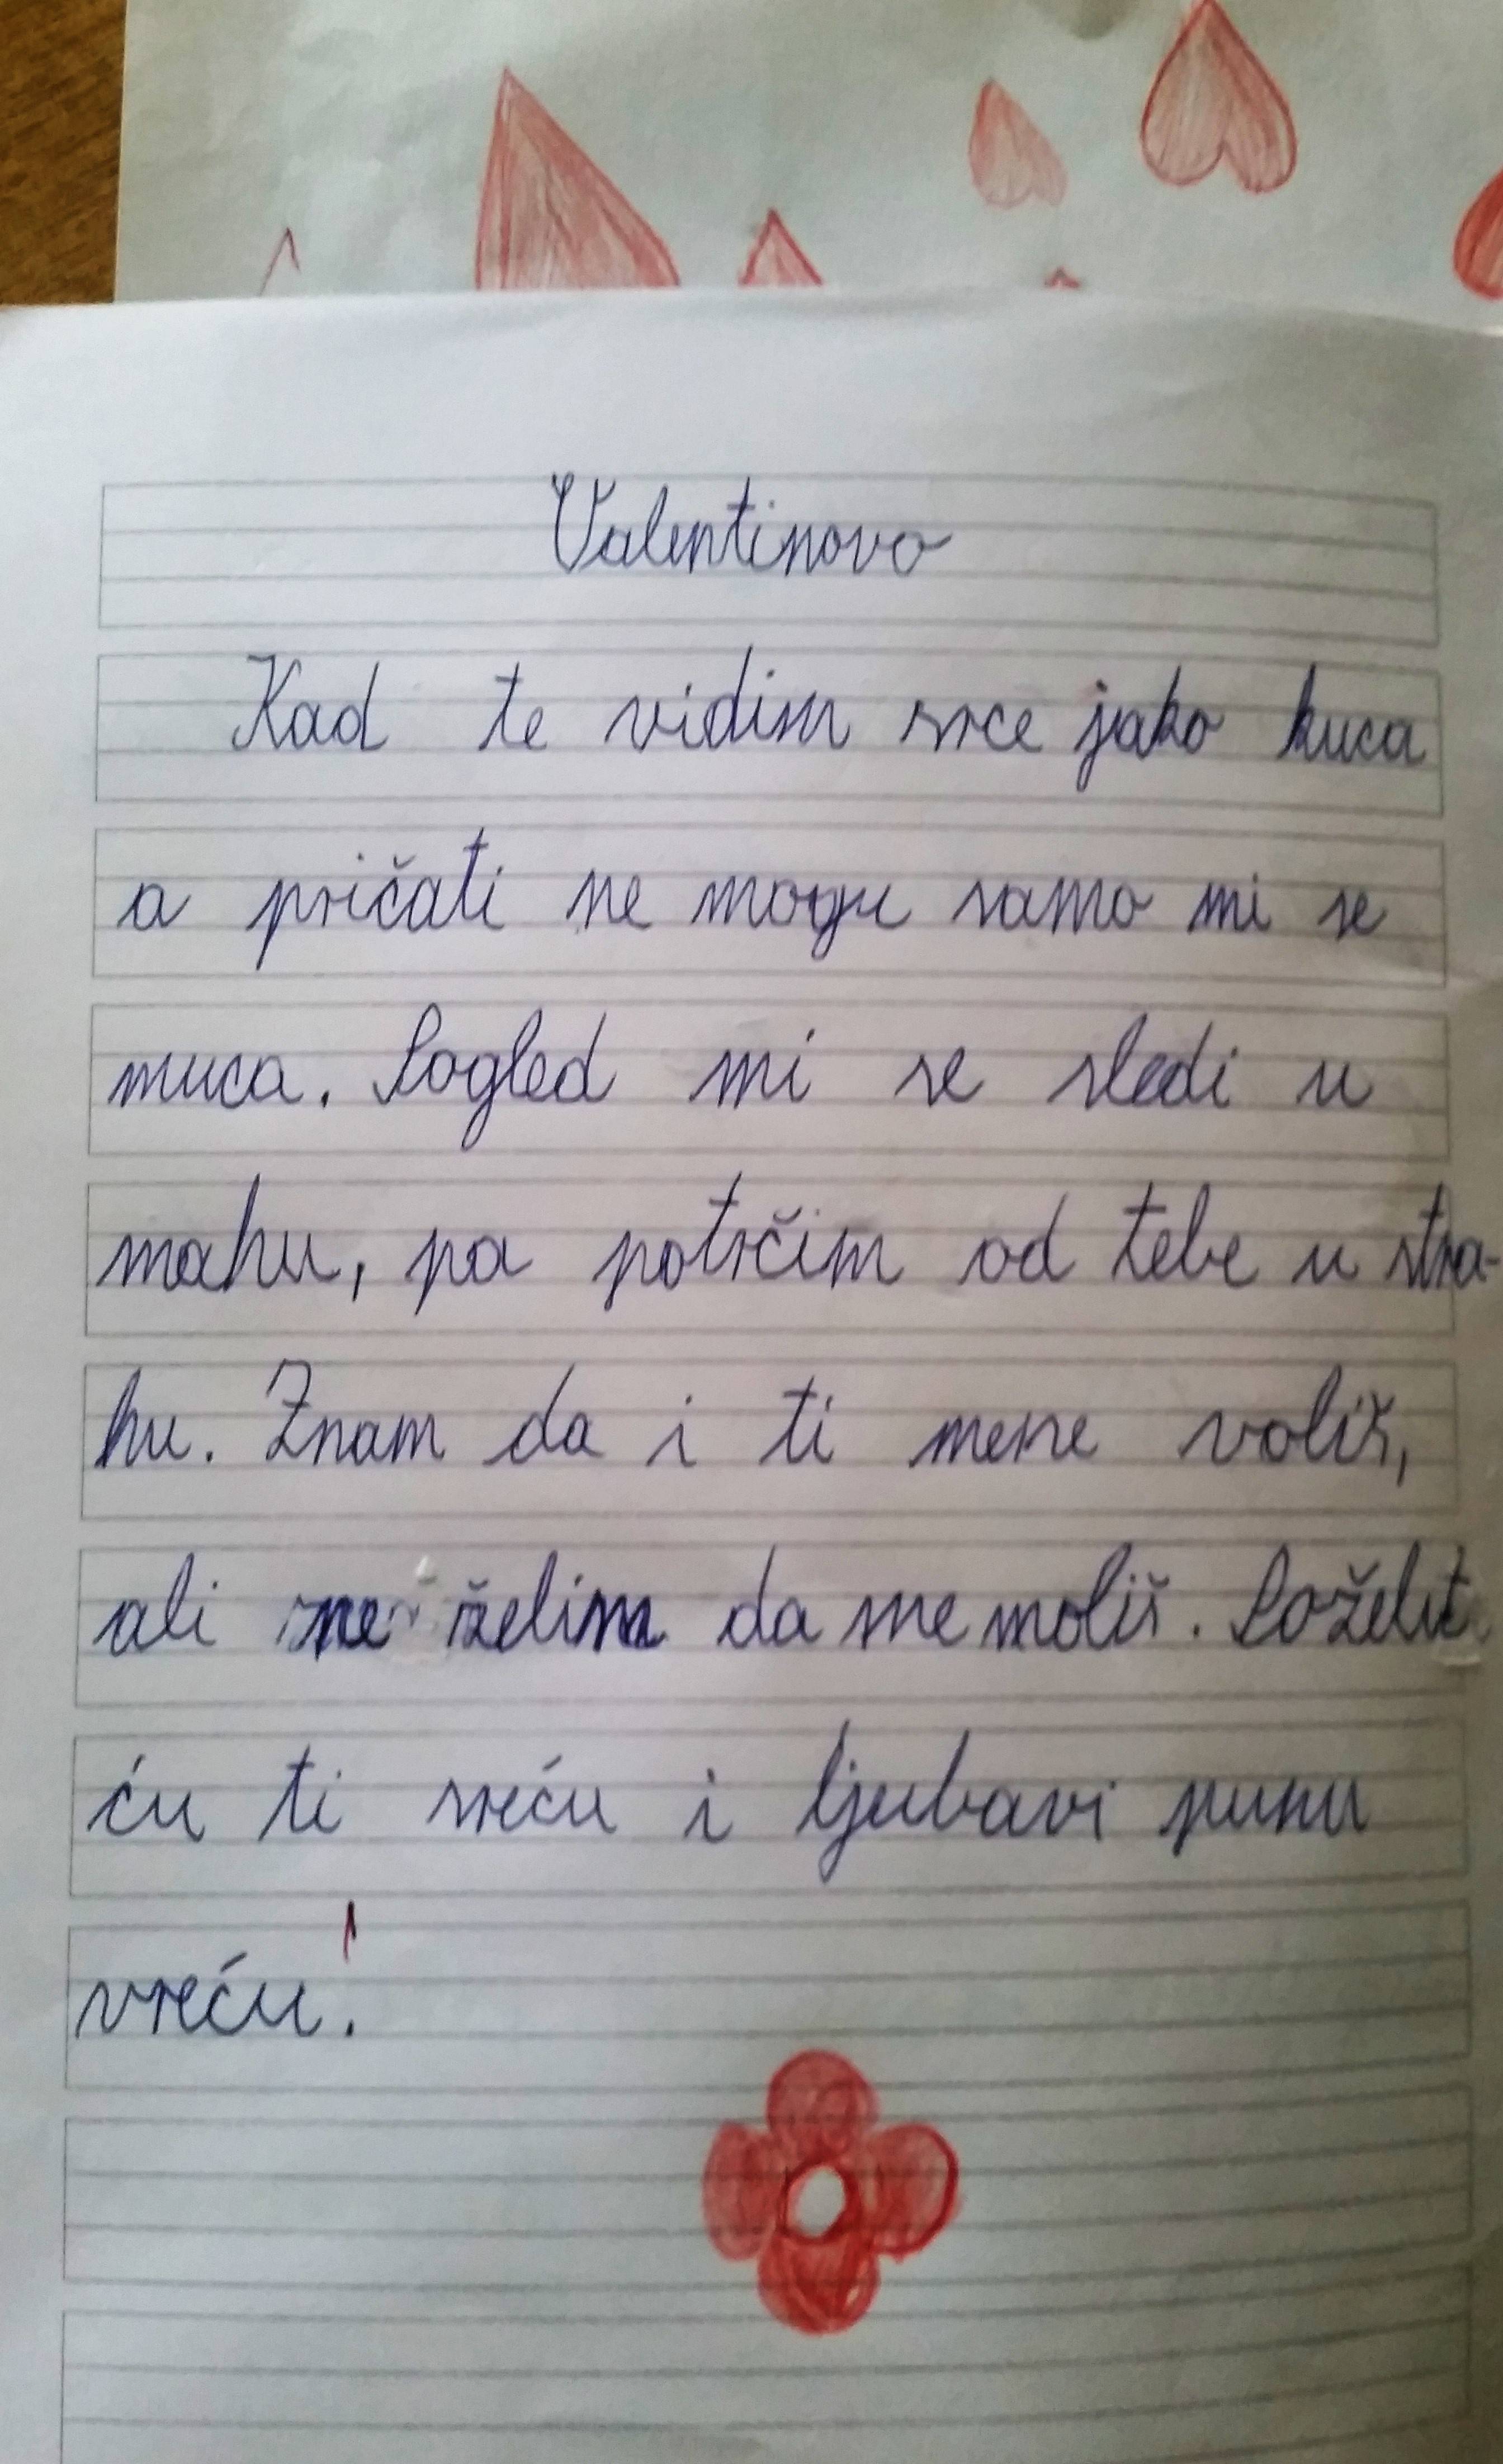 Valentinovo
Kad te vidim srce jako kuca
a pričati ne mogu samo mi se
muca. Pogled mi se sledi u
mahu, pa potrčim od tebe u stra-
hu. Znam da i ti mene voliš,
ali ne želim da me moliš. Poželit
ću ti sreću i ljubavi punu
vreću!